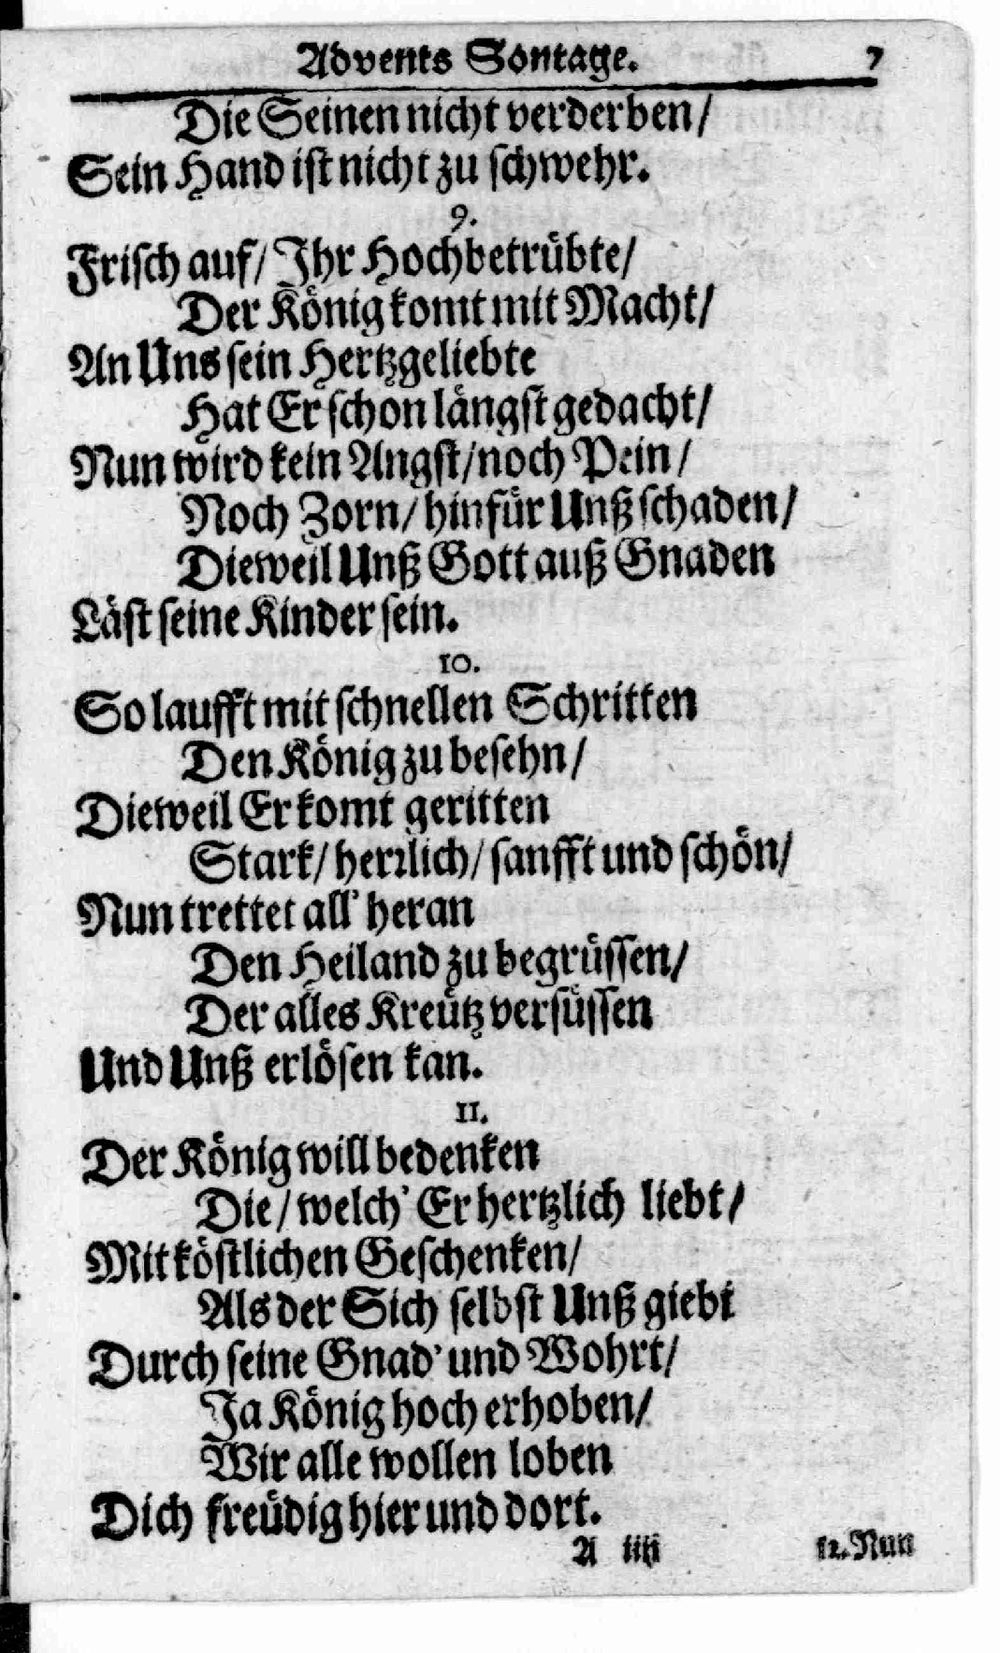 Advents Sontage. 7
Die Seinen nicht verderben/
Sein Hand ist nicht zu schwehr.
9.
Frisch auf/ Ihr Hochbetrübte/
Der König komt mit Macht/
An Uns sein Hertzgeliebte
Hat Er schon längst gedacht/
Nun wird kein Angst/ noch Pein/
Noch Zorn/ hinfür Unß schaden/
Dieweil Unß Gott auß Gnaden
Läst seine Kinder sein.
10.
So laufft mit schnellen Schritten
Den König zu besehn/
Dieweil Er komt geritten
Stark/ herrlich/ sanfft und schön/
Nun trettet all' heran
Den Heiland zu begrüssen/
Der alles Kreütz versüssen
Und Unß erlösen kan.
11.
Der König will bedenken
Die/ welch' Er hertzlich liebt/
Mit köstlichen Geschenken/
Als der Sich selbst Unß giebt
Durch seine Gnad' und Wohrt/
Ja König hoch erhoben/
Wir alle wollen loben
Dich freüdig hier und dort.
A iiij 12. Nun